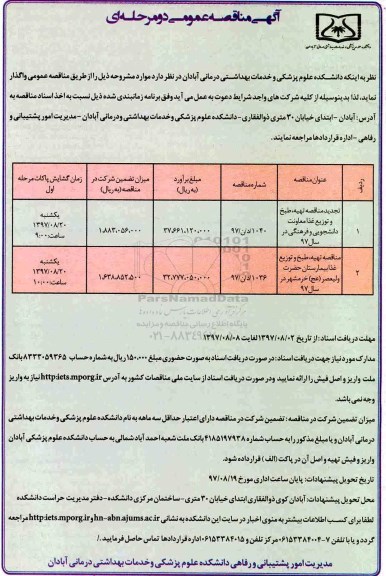 آگهی مناقصه عمومی دو مرحله ای
نظر به اینکه دانشکده علوم پزشکی و خدمات بهداشتی درمانی آبادان در نظر دارد موارد مشروحه ذیل را از طریق مناقصه عمومی واگذار
نماید، لذا بدینوسیله از کلیه شرکت های واجد شرایط دعوت به عمل می آید وفق برنامه زمانبندی شده ذیل نسبت به اخذ اسناد مناقصه به
آدرس: آبادان - ابتدای خیابان ۳۰ متری ذوالفقاری - دانشکده علوم پزشکی و خدمات بهداشتی و درمانی آبادان - مدیریت امور پشتیبانی و
رفاهی - اداره قراردادها مراجعه نمایند.
ردیف عنوان مناقصه شماره مناقصه مبلغ برآورد (به ریال) میزان تضمین شرکت در مناقصه (به ریال) زمان گشایش پاکات مرحله اول
۱ تجدید مناقصه تهیه، طبخ و توزیع غذا معاونت دانشجویی و فرهنگی در سال ۹۷ ۱۰۴۰/دن/۹۷ ۳۷،۶۶۱،۱۲۰،۰۰۰ ۱،۸۸۳،۰۵۶،۰۰۰ یکشنبه ۱۳۹۷/۰۸/۲۰ ساعت ۹:۰۰
۲ مناقصه تهیه، طبخ و توزیع غذا بیمارستان حضرت ولیعصر (عج) خرمشهر در سال ۹۷ ۱۰۳۶/دن/۹۷ ۳۲،۷۷۷،۰۵۰،۰۰۰ ۱،۶۳۸،۸۵۲،۵۰۰ یکشنبه ۱۳۹۷/۰۸/۲۰ ساعت ۱۰:۰۰
مهلت دریافت اسناد: از تاریخ ۱۳۹۷/۰۸/۰۲ لغایت ۱۳۹۷/۰۸/۰۸
مدارک مورد نیاز جهت دریافت اسناد: در صورت دریافت اسناد به صورت حضوری مبلغ ۱۵۰،۰۰۰ ریال به شماره حساب ۸۳۳۳۰۵۹۳۶۵ بانک
ملت واریز و اصل فیش را ارائه نمایید و در صورت دریافت اسناد از سایت ملی مناقصات کشور به آدرس http:iets.mporg.ir نیاز به واریز
وجه نمی باشد.
میزان تضمین شرکت در مناقصه: تضمین شرکت در مناقصه دارای اعتبار حداقل سه ماهه به نام دانشکده علوم پزشکی و خدمات بهداشتی
درمانی آبادان و یا مبلغ مذکور را به حساب شماره ۴۱۸۵۱۹۷۹۳۸ بانک ملت شعبه احمد آباد شمالی به حساب دانشکده علوم پزشکی آبادان
واریز و فیش تهیه و اصل آن در پاکت (الف) قرار داده شود.
تاریخ تحویل پیشنهادات: پایان ساعت اداری مورخ ۹۷/۰۸/۱۹
محل تحویل پیشنهادات: آبادان کوی ذوالفقاری ابتدای خیابان ۳۰ متری - ساختمان مرکزی دانشکده - دفتر مدیریت حراست دانشکده
لطفا برای کسب اطلاعات بیشتر به منوی اخبار در سایت این دانشکده به نشانی hn-abn.ajums.ac.ir و http:iets.mporg.ir مراجعه
گردد و یا با تلفن ۷-۰۶۱۵۳۳۸۴۰۰۴ مرکز تلفن و ۰۶۱۵۳۳۸۴۰۱۵ اداره قراردادها تماس حاصل فرمایید./
مدیریت امور پشتیبانی و رفاهی دانشکده علوم پزشکی و خدمات بهداشتی درمانی آبادان